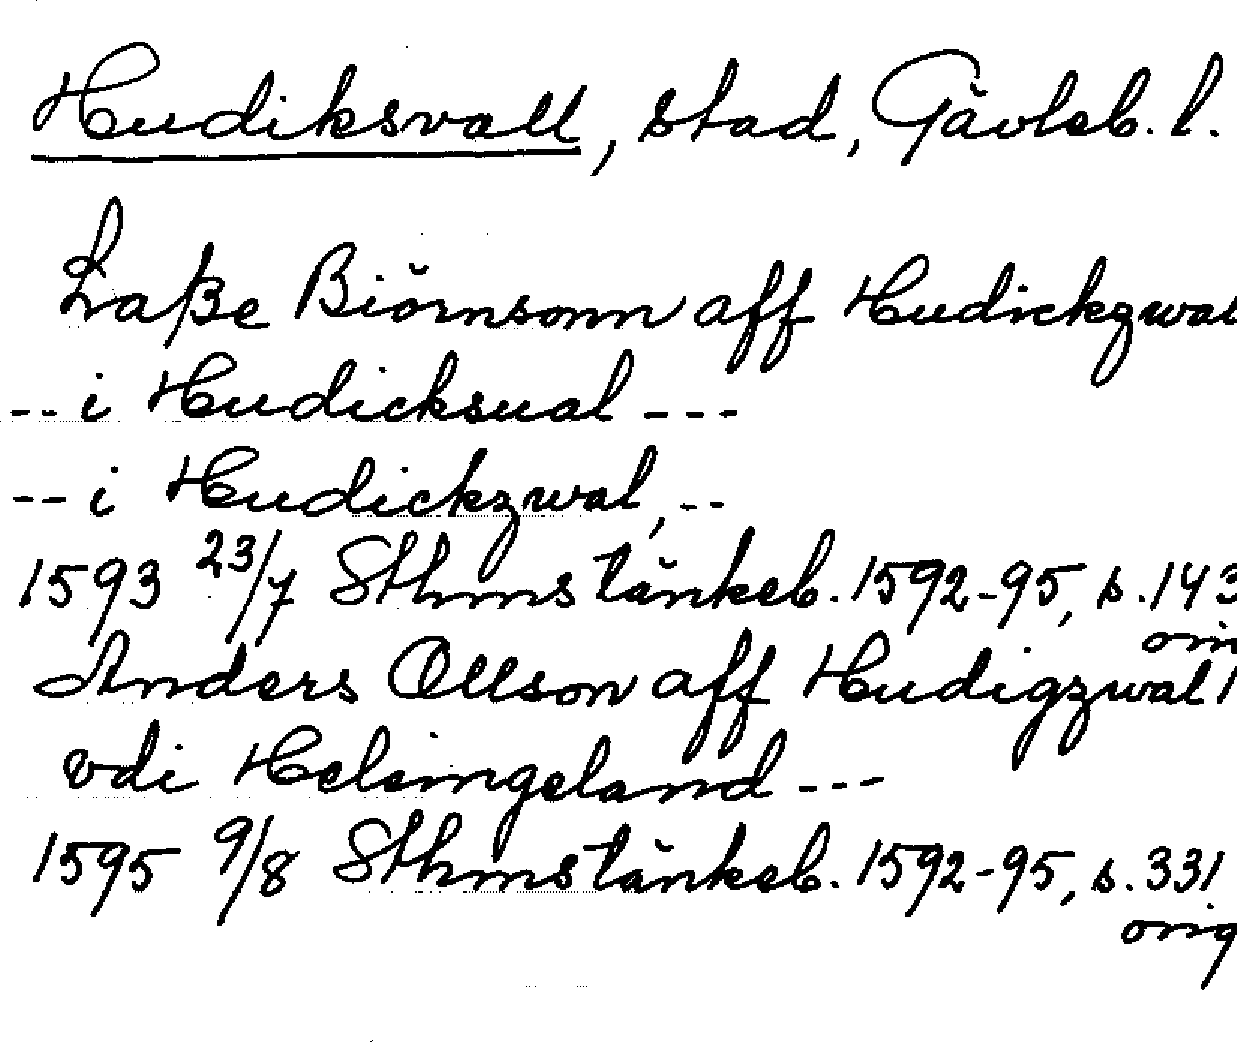 Hudiksvall, stad, Gävleb. l.
Laße Biörnsonn aff Hudickzwal
-- i Hudicksual ---
-- i Hudickzwal, --
1593 23/7 Sthms tänkeb. 1592-95, s. 143
orig
Anders Ollson aff Hudigzwal
vdi Helsingeland ---
1595 9/8 Sthms tänkeb. 1592-95, s. 331
orig